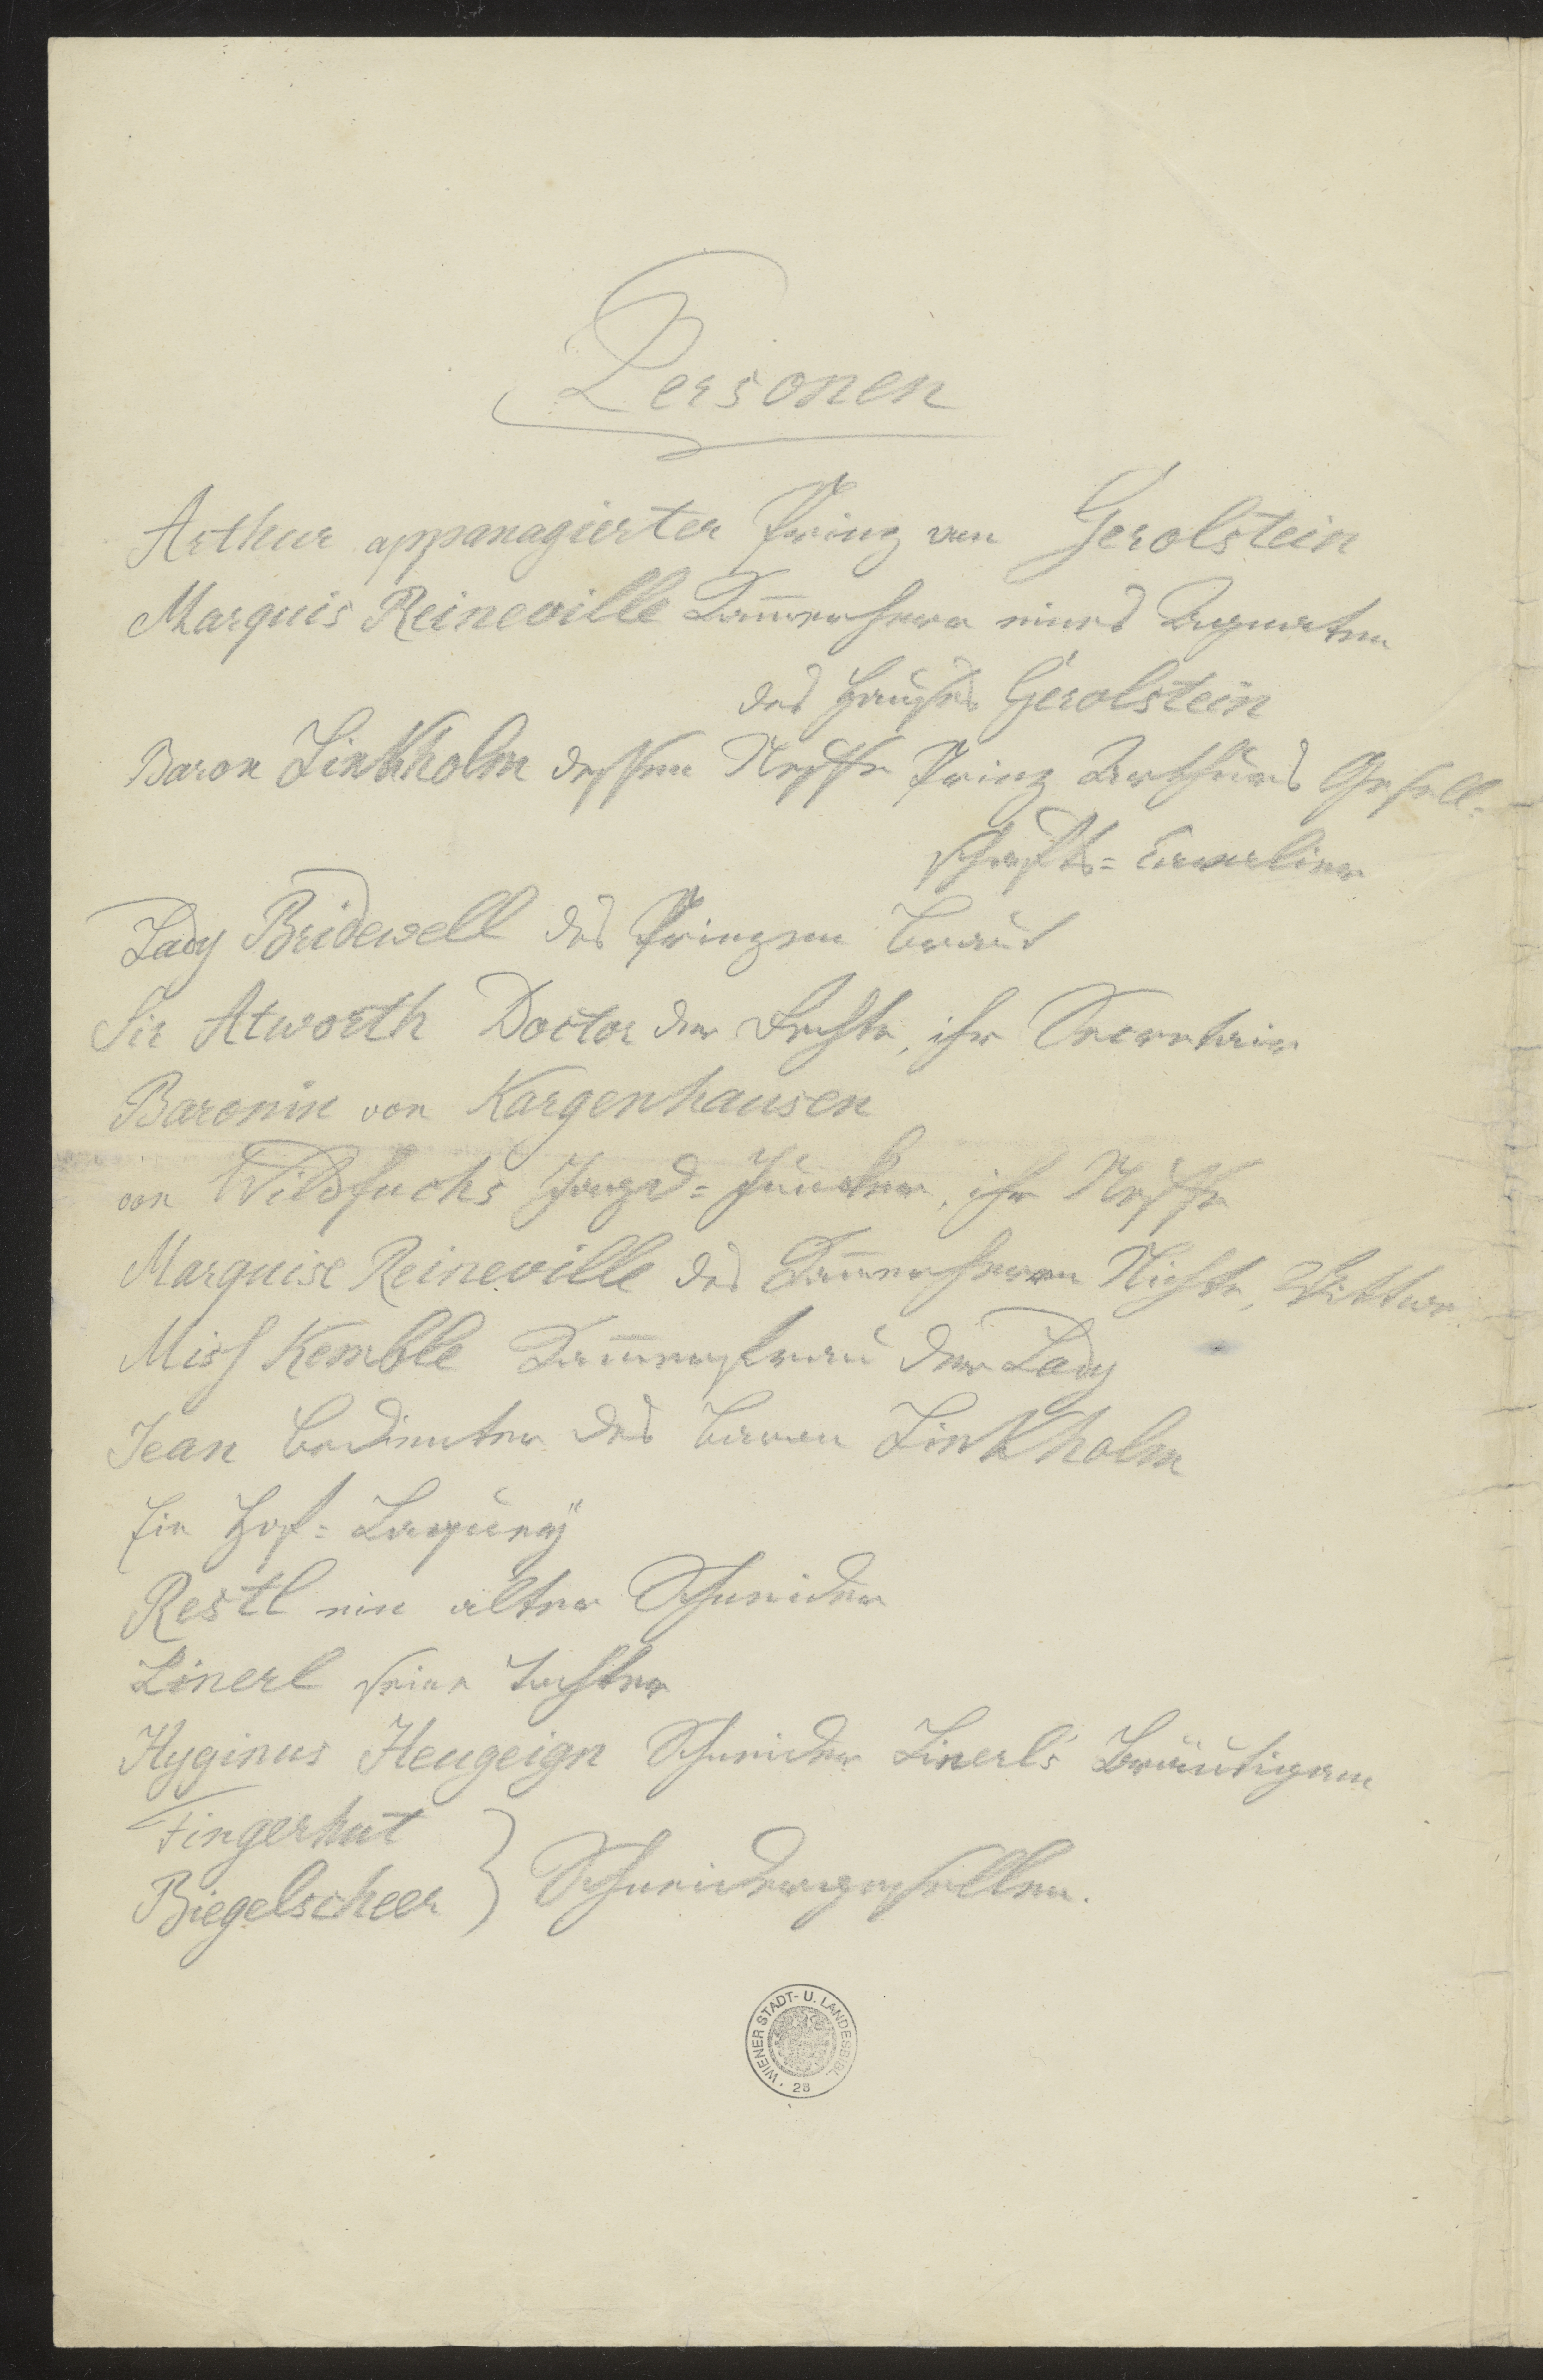 Personen
Arthur appanagierter Prinz von Gerolstein
Marquis Reineville Kam̅erherr eines Agnaten
des Hauses Gerolstein
Baron Linkholm dessen Neffe Prinz Arthurs Gesell-
schafts=Cavalier
Lady Bridewell des Prinzen Braut
Sir Atworth Doctor der Rechte, ihr Secretair
Baronin von Kargenhausen
von Wildfuchs Jagd=Juncker, ihr Neffe
Marquise Reineville des Kam̅erherrn Nichte, Wittwe
Miss Kemble Kam̅erfrau der Lady
Jean Bedienter des Baron Linkholm
Ein Hof=Laquey
Restl ein alter Schneider
Linerl seine Tochter
Hyginus Heugeign Schneider Linerl's Bräutigam
Fingerhut
Biegelscheer } Schneidergesellen.
WIENER STADT- U. LANDESBIBL.
28